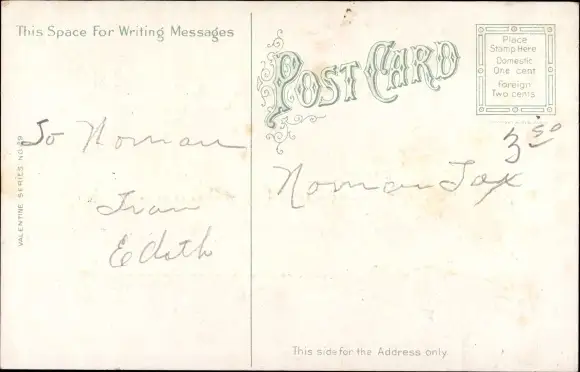 This Space For Writing Messages
POST CARD
Place
Stamp Here
Domestic
One cent
Foreign
Two cents
3 50
To Norman
Norman Fox
From
Edith
VALENTINE SERIES NO.
This side for the Address only.